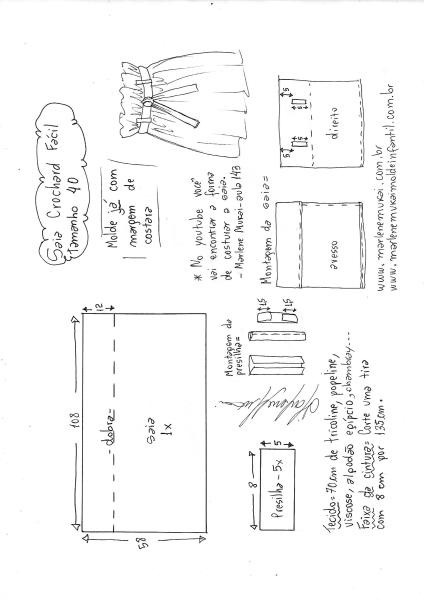 Saia Crochard Fácil
Tamanho 40
Molde já com
margem de
costura
* No youtube você
vai encontrar a forma
de costurar a saia.
- Marlene Mukai - aula 143
108
58
12
- dobra -
Saia
1x
Montagem da
presilha =
1,5
1,5
8
5
Presilha - 5x
Montagem da saia =
avesso
direito
5
5
5
5
Tecido = 70cm de tricoline, popeline,
viscose, algodão egípcio, chambray...
Faixa da cintura = Corte uma tira
com 8 cm por 135cm.
www.marlenemukai.com.br
www.marlenemukaimoldeinfantil.com.br